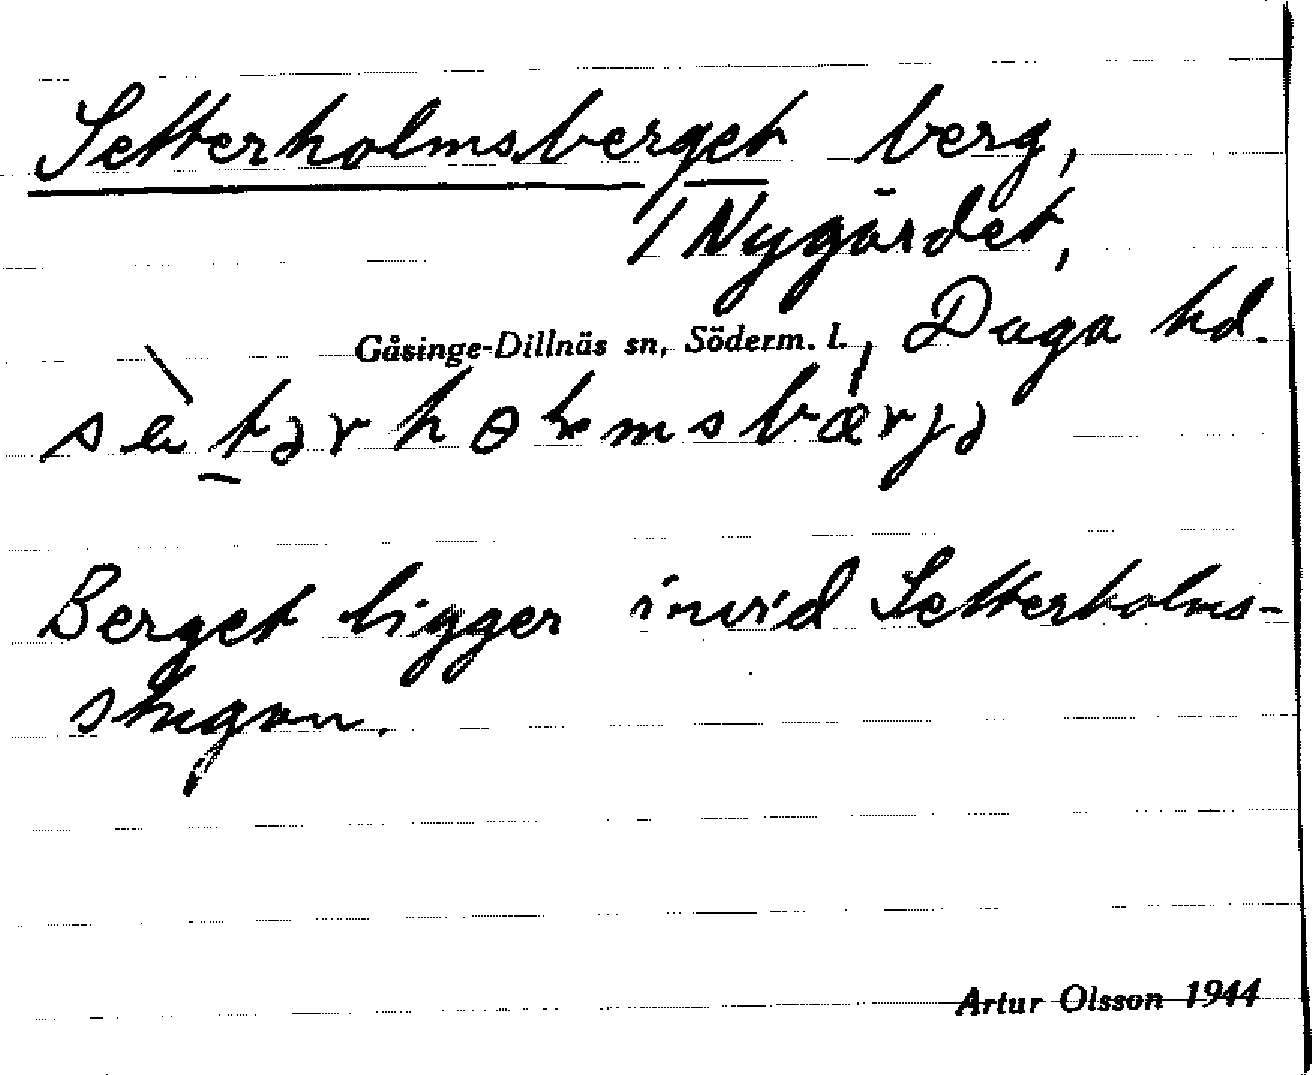 Setterholmsberget berg,
/ Nygärdet,
Gåsinge-Dillnäs sn, Söderm. l., Daga hd.
Berget ligger invid Setterholms-
stugan.
Artur Olsson 1944